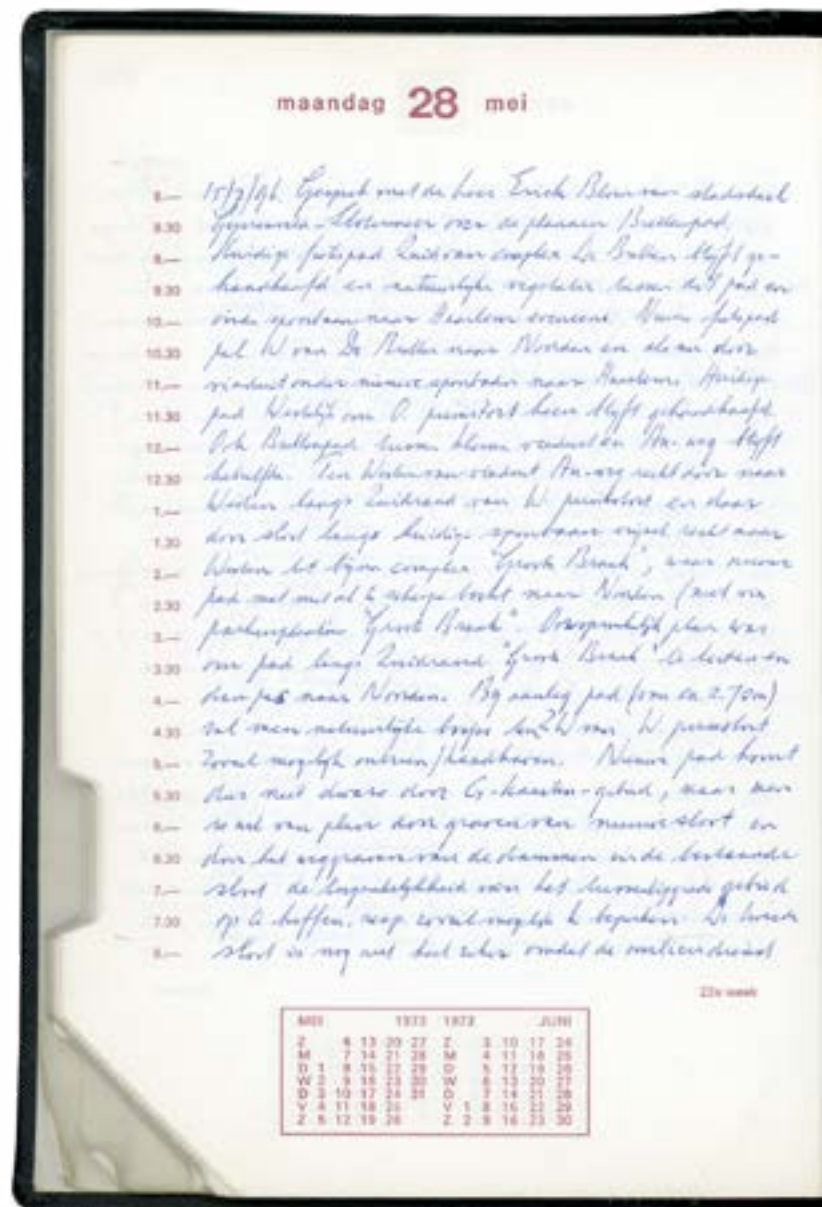 maandag 28 mei
8.— 15/7/96 Gesprek met de heer Erick Blom van stadsdeel
8.30 Geuzenveld-Slotermeer over de plannen Brettenpad.
9.— Huidige fietspad Zuid van complex De Bretten blijft ge-
9.30 handhaafd en natuurlijke vegetatie tussen dit pad en
10.— spoorbaan naar Haarlem eveneens. Nieuw fietspad
10.30 W van De Bretten naar Noorden en door
11.— viaduct onder nieuwe spoorbaan naar Haarlem. Huidige
11.30 pad Westelijk om O. puinstort heen blijft gehandhaafd.
12.— Ook Brettenpad tussen viaduct en weg blijft
12.30 Ten Westen van viaduct weg recht door naar
1.— Westen langs Zuidrand van W. puinstort en daar
1.30 door sloot langs huidige spoorbaan recht naar
2.— Westen tot bijna complex "Groote Braak", waar nieuwe
2.30 pad met niet al te scherpe bocht naar Noorden (niet via
3.— parkeerplaatsen "Groote Braak". Oorspronkelijk plan was
3.30 om pad langs Zuidrand "Groote Braak" te leiden en
4.— dan pas naar Noorden. Bij aanleg pad (van ca 2.70m)
4.30 zal men natuurlijke bosjes ten Z W van W. puinstort
5.— zoveel mogelijk ontzien/handhaven. Nieuwe pad komt
5.30 dus niet dwars door -gebied, maar men
6.— is wel van plan door graven van nieuwe sloot en
6.30 door het weggraven van de dammen in de bestaande
7.— sloot de toegankelijkheid van het tussenliggende gebied
7.30 op te heffen, resp. zoveel mogelijk te beperken. De tweede
8.— sloot is nog niet heel zeker omdat de
22e week
MEI 1973 1973 JUNI
Z 6 13 20 27 Z 3 10 17 24
M 7 14 21 28 M 4 11 18 25
D 1 8 15 22 29 D 5 12 19 26
W 2 9 16 23 30 W 6 13 20 27
D 3 10 17 24 31 D 7 14 21 28
V 4 11 18 25 V 1 8 15 22 29
Z 5 12 19 26 Z 2 9 16 23 30